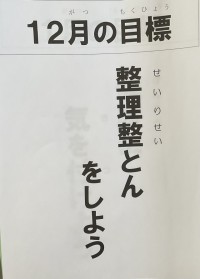 がつ もくひょう
12月の目標
せいりせい
整理整とん
をしよう